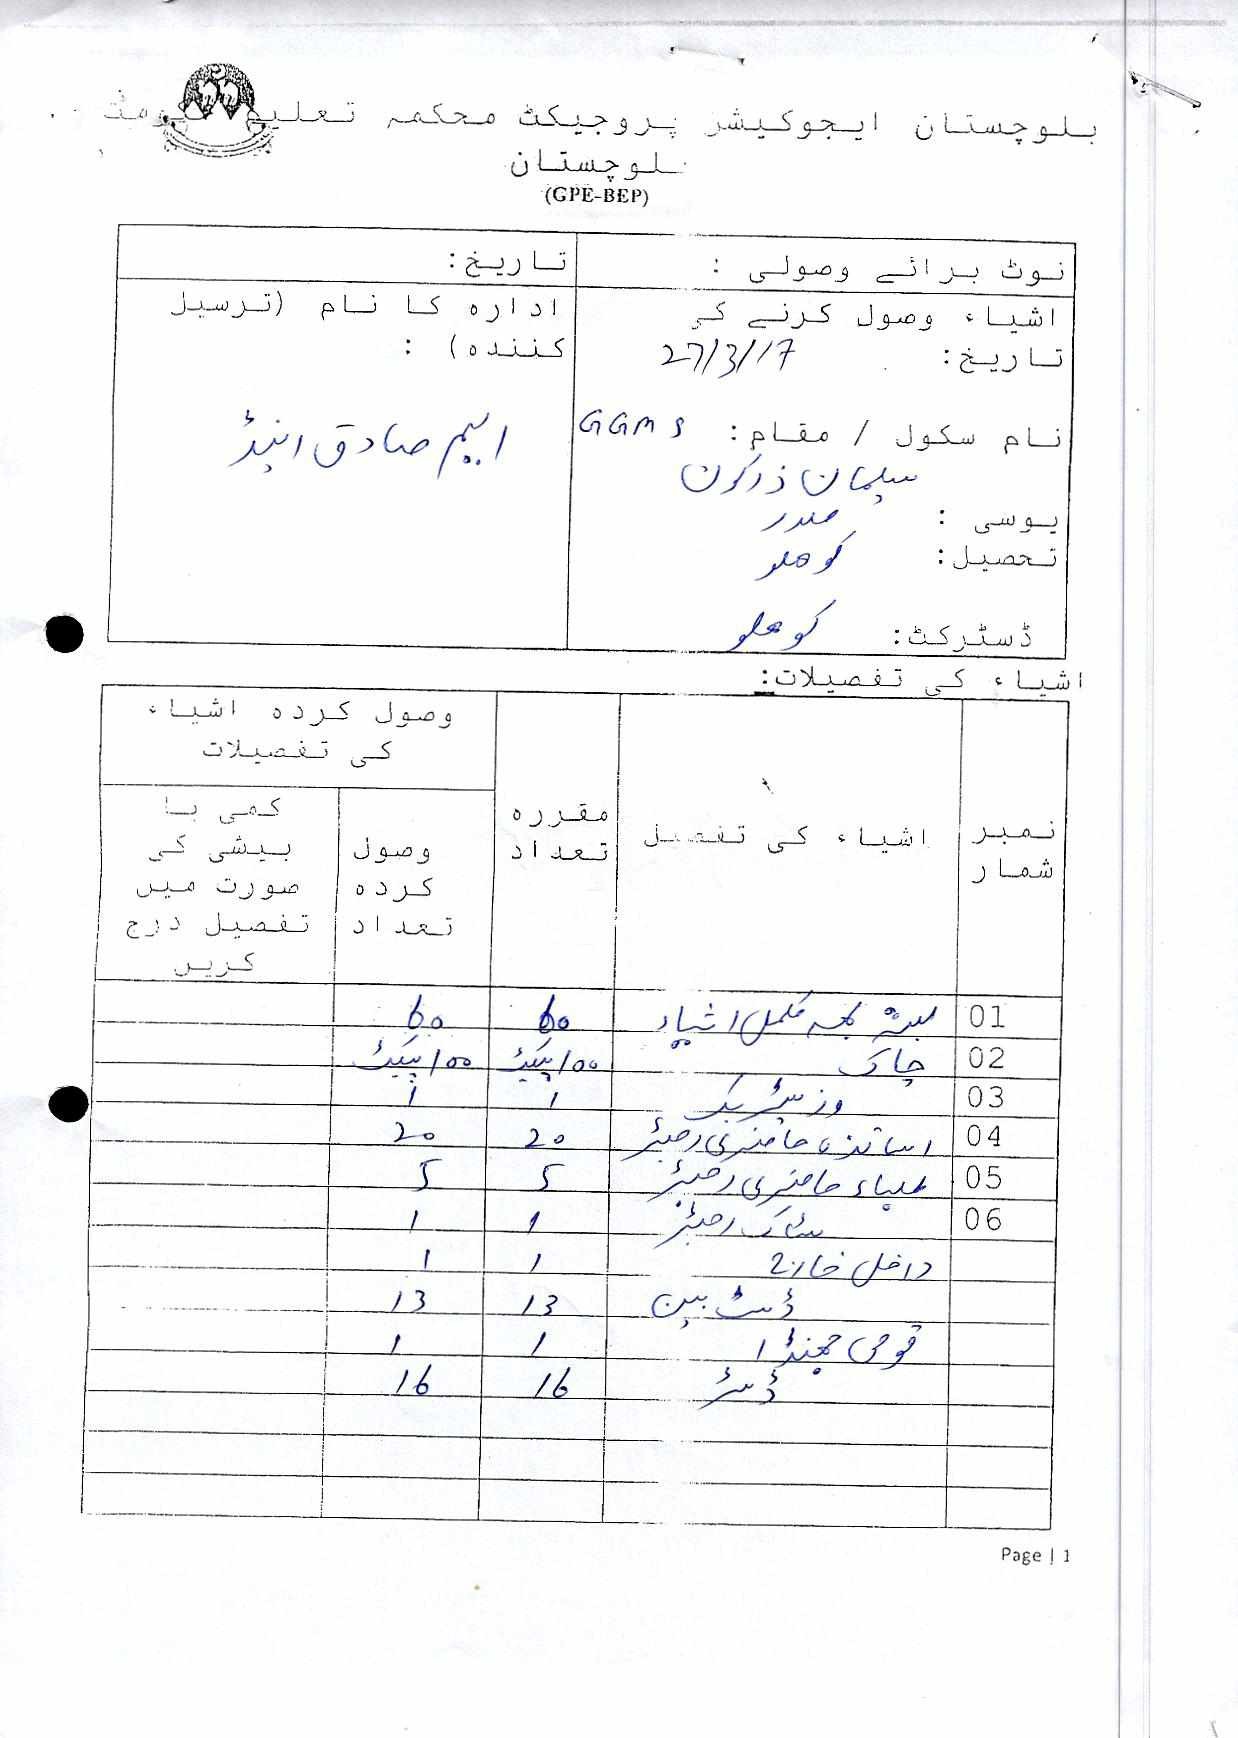 بلوچستان ایجوکیشن پروجیکٹ محکمہ تعلیم
بلوچستان
(GPE-BEP)
نوٹ برائے وصولی :
تاریخ:
اشیاء وصول کرنے کی
تاریخ: 27/3/17
نام سکول / مقام: GGMS
سلیمان زرکون
یوسی : صدر
تحصیل: کوھلو
ڈسٹرکٹ: کوھلو
ادارہ کا نام (ترسیل
کنندہ) :
ایم صادق اینڈ
اشیاء کی تفصیلات:
نمبر شمار
اشیاء کی تفصیل
مقررہ تعداد
وصول کردہ اشیاء کی تفصیلات
وصول کردہ تعداد
کمی یا بیشی کی صورت میں تفصیل درج کریں
01 بستہ بمعہ مکمل اشیاء 60 60
02 چاک 100 پیکٹ 100 پیکٹ
03 وزیٹر بک 1 1
04 اساتذہ حاضری رجسٹر 20 20
05 طلباء حاضری رجسٹر 5 5
06 سٹاک رجسٹر 1 1
داخل خارج 1 1
ڈسٹ بین 13 13
قومی جھنڈا 1 1
ڈسٹر 16 16
Page | 1